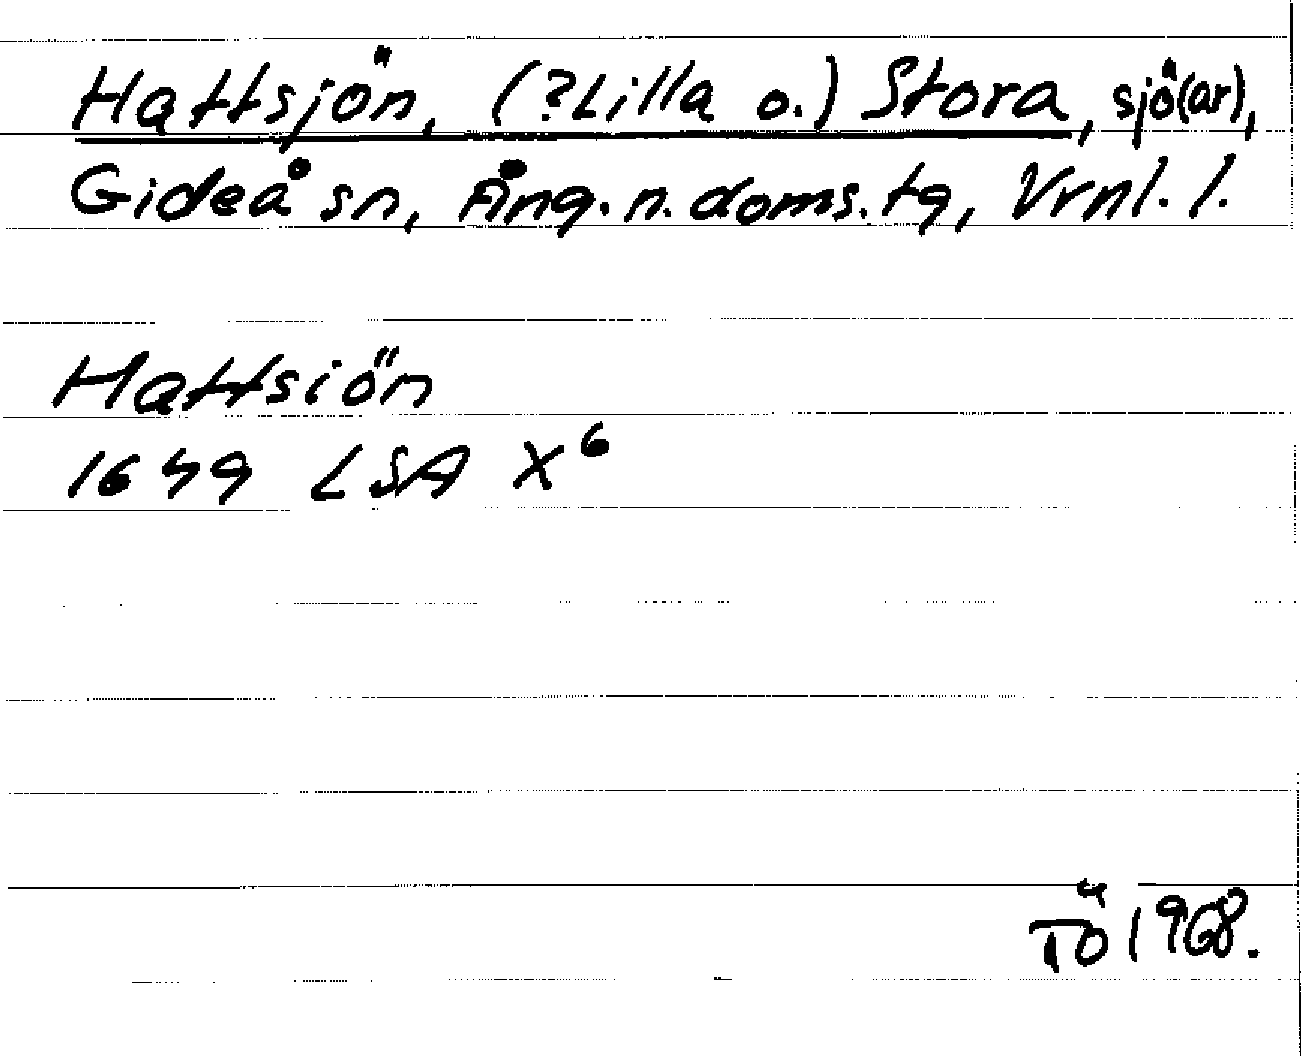 Hattsjön, (?Lilla o.) Stora, sjö(ar),
Gideå sn, Ång. n. doms. tg, Vrnl. l.
Hattsiön
1649 LSA X⁶
TÖ 1968.